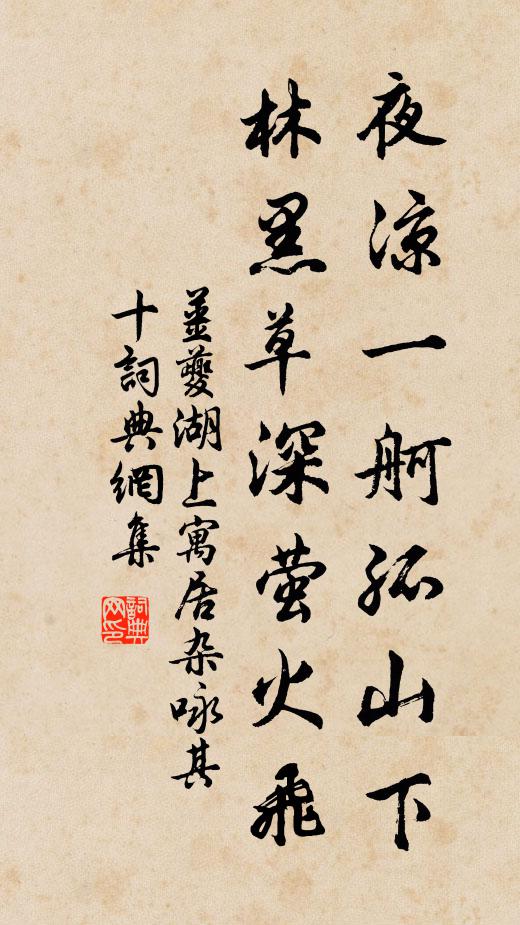 夜涼一舸孤山下
林黑草深萤火飛
姜夔湖上寓居杂咏其
十詞典網集
詞典
网印